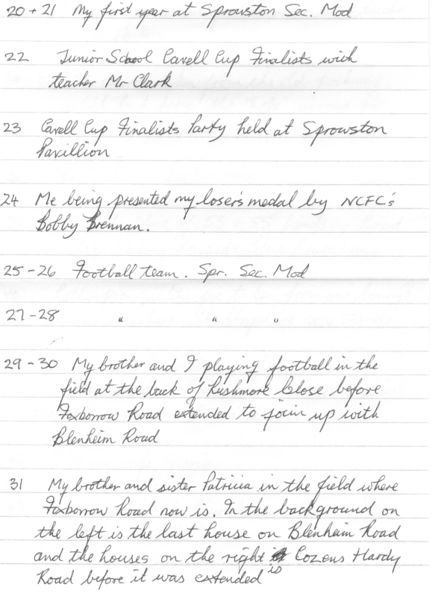 20 + 21 My first year at Sprowston Sec. Mod
22 Junior School Cavell Cup Finalists with
teacher Mr Clark
23 Cavell Cup Finalists Party held at Sprowston
Pavillion
24 Me being presented my loser's medal by NCFC's
Bobby Brennan.
25-26 Football team. Spr. Sec. Mod
27-28 " " "
29-30 My brother and I playing football in the
field at the back of Rushmore Close before
Foxborrow Road extended to join up with
Blenheim Road
31 My brother and sister Patricia in the field where
Foxborrow Road now is. In the background on
the left is the last house on Blenheim Road
and the houses on the right is Cozens Hardy
Road before it was extended